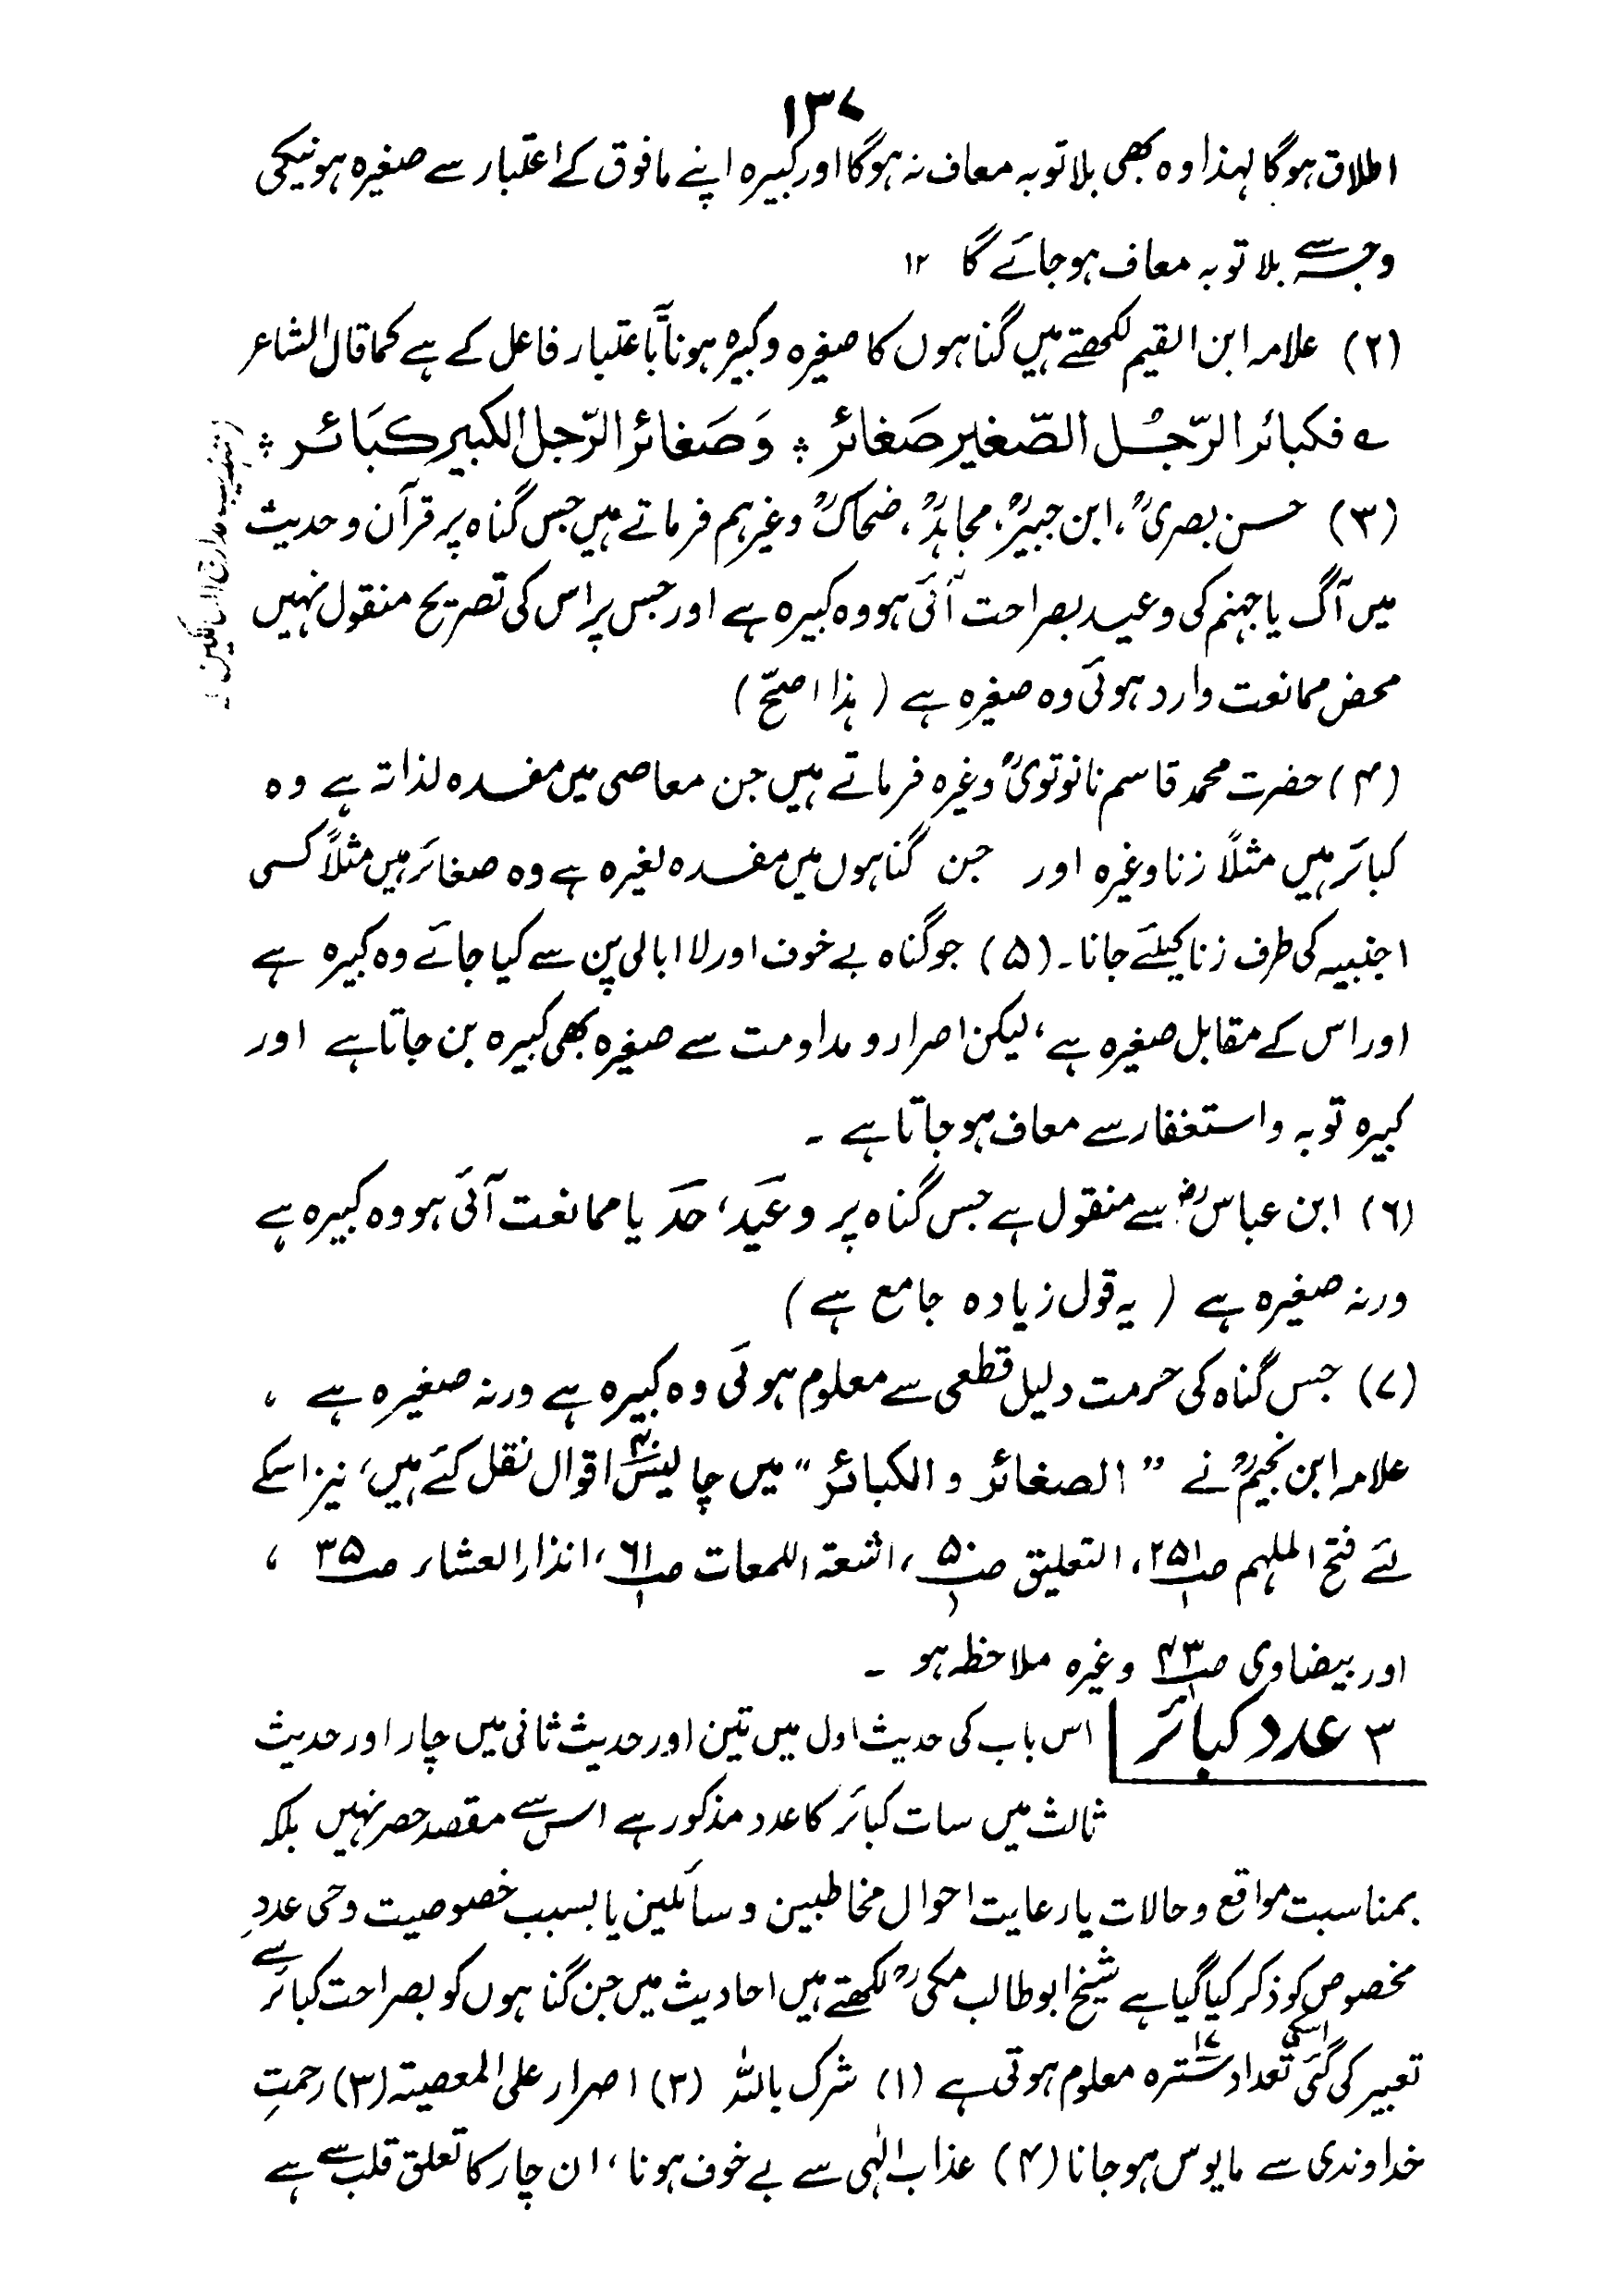 ۱۳۷
اطلاق ہوگا لہذا وہ بھی بلا توبہ معاف نہ ہوگا اور کبیرہ اپنے مافوق کے اعتبار سے صغیرہ ہونیکی
وجہ سے بلا توبہ معاف ہوجائے گا ۱۲
(۲) علامہ ابن القیم لکھتے ہیں گناہوں کا صغیرہ وکبیرہ ہونا باعتبار فاعل کے ہے کما قال الشاعر
؎ فکبائر الرّجُل الصّغیر صَغائر ؞ وَصَغائر الرّجل الکبیر کبَائر ؞
(۳) حسن بصریؒ، ابن جبیرؒ، مجاہدؒ، ضحاکؒ وغیرہم فرماتے ہیں جس گناہ پر قرآن وحدیث
میں آگ یا جہنم کی وعید بصراحت آئی ہو وہ کبیرہ ہے اور جس پر اس کی تصریح منقول نہیں
محض ممانعت وارد ہوئی وہ صغیرہ ہے (ہذا اصحّ)
(۴) حضرت محمد قاسم نانوتویؒ وغیرہ فرماتے ہیں جن معاصی میں مفسدہ لذاتہ ہے وہ
کبائر ہیں مثلاً زنا وغیرہ اور جن گناہوں میں مفسدہ لغیرہ ہے وہ صغائر ہیں مثلاً کسی
اجنبیہ کی طرف زنا کیلئے جانا۔ (۵) جو گناہ بے خوف اور لا ابالی پن سے کیا جائے وہ کبیرہ ہے
اور اس کے مقابل صغیرہ ہے، لیکن اصرار ومداومت سے صغیرہ بھی کبیرہ بن جاتا ہے اور
کبیرہ توبہ واستغفار سے معاف ہوجاتا ہے ۔
(۶) ابن عباسؓ سے منقول ہے جس گناہ پر وعید، حد یا ممانعت آئی ہو وہ کبیرہ ہے
ورنہ صغیرہ ہے (یہ قول زیادہ جامع ہے)
(۷) جس گناہ کی حرمت دلیل قطعی سے معلوم ہوئی وہ کبیرہ ہے ورنہ صغیرہ ہے ،
علامہ ابن نجیمؒ نے ”الصغائر و الکبائر“ میں چالیس۴۰ اقوال نقل کئے ہیں، نیز اسکے
لئے فتح الملہم ص۲۵۱/۱، التعلیق ص۵۰/۱، اشعۃ اللمعات ص۶۱/۱، انذار العشائر ص۳۵ ،
اور بیضاوی ص۴۳ وغیرہ ملاحظہ ہو ۔
۳ عدد کبائر اس باب کی حدیث اول میں تین اور حدیث ثانی میں چار اور حدیث
ثالث میں سات کبائر کا عدد مذکور ہے اس سے مقصد حصر نہیں بلکہ
بمناسبت مواقع وحالات یا رعایت احوال مخاطبین وسائلین یا بسبب خصوصیت وحی عددِ
مخصوص کو ذکر کیا گیا ہے شیخ ابو طالب مکیؒ لکھتے ہیں احادیث میں جن گناہوں کو بصراحت کبائر سے
تعبیر کی گئی اسکی تعداد سترہ۱۷ معلوم ہوتی ہے (۱) شرک باللہ (۲) اصرار علی المعصیۃ (۳) رحمتِ
خداوندی سے مایوس ہوجانا (۴) عذاب الٰہی سے بے خوف ہونا، ان چار کا تعلق قلب سے ہے